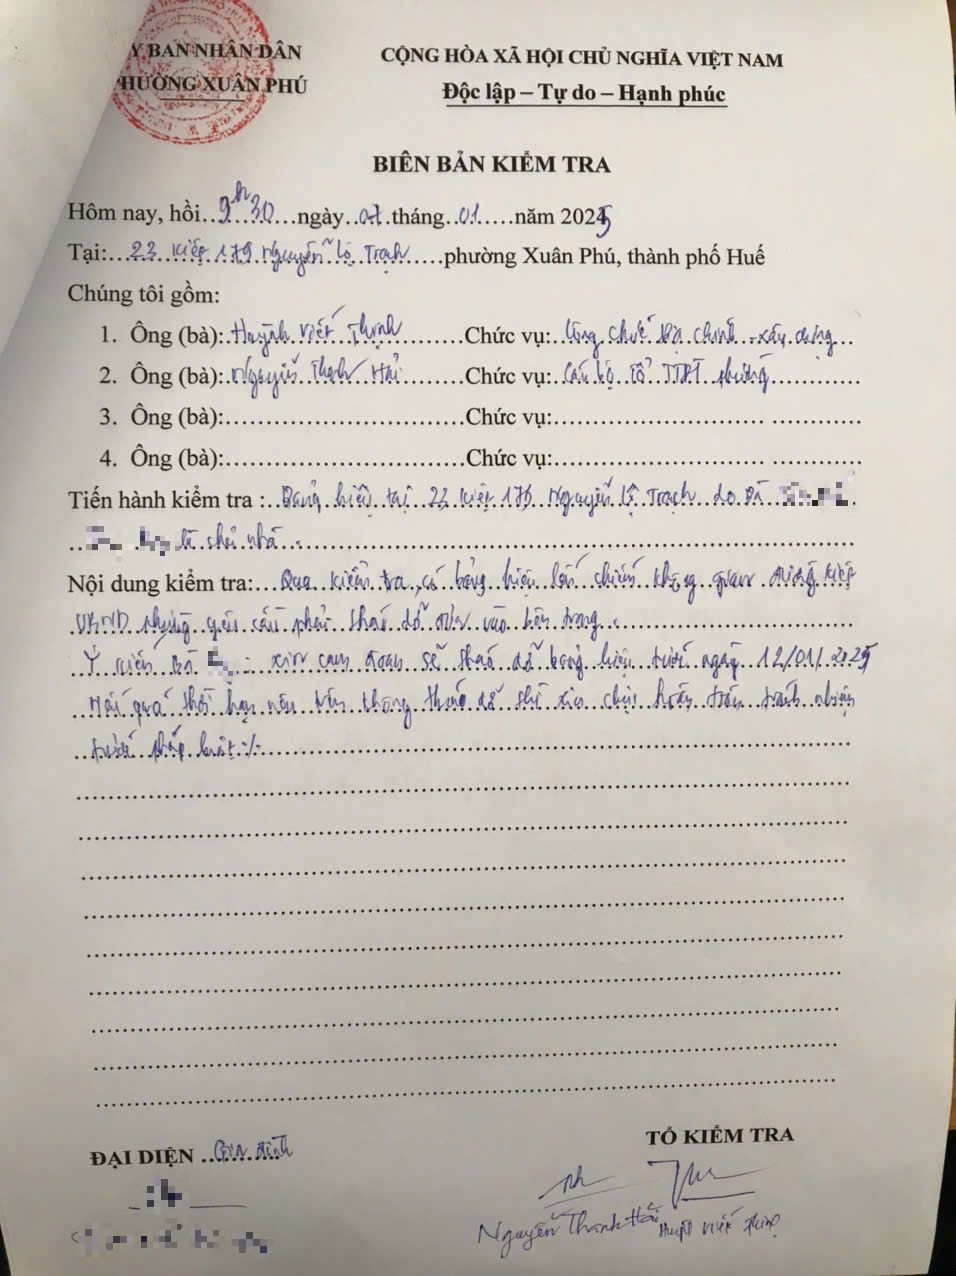 Y BAN NHÂN DÂN
HƯỜNG XUÂN PHÚ
CỘNG HÒA XÃ HỘI CHỦ NGHĨA VIỆT NAM
Độc lập – Tự do – Hạnh phúc
BIÊN BẢN KIỂM TRA
Hôm nay, hồi 9h30 ngày 07 tháng 01 năm 2025
Tại: 23 Kiệt 179 Nguyễn Lộ Trạch phường Xuân Phú, thành phố Huế
Chúng tôi gồm:
1. Ông (bà): Huỳnh Viết Thịnh Chức vụ: Công chức Địa chính - xây dựng
2. Ông (bà): Nguyễn Thanh Hải Chức vụ: Cán bộ tổ TTĐT phường
3. Ông (bà): Chức vụ:
4. Ông (bà): Chức vụ:
Tiến hành kiểm tra : Bảng hiệu tại 23 Kiệt 179 Nguyễn Lộ Trạch do Bà
là chủ nhà.
Nội dung kiểm tra: Qua kiểm tra, có bảng hiệu lấn chiếm không gian đường kiệt
UBND Phường yêu cầu phải tháo dỡ đưa vào bên trong.
Ý kiến Bà : xin cam đoan sẽ tháo dỡ bảng hiệu trước ngày 12/01/2025
Nếu quá thời hạn nêu trên không tháo dỡ thì xin chịu hoàn toàn trách nhiệm
trước pháp luật ./.
ĐẠI DIỆN Gia đình
TỔ KIỂM TRA
Nguyễn Thanh Hải Huỳnh Viết Thịnh